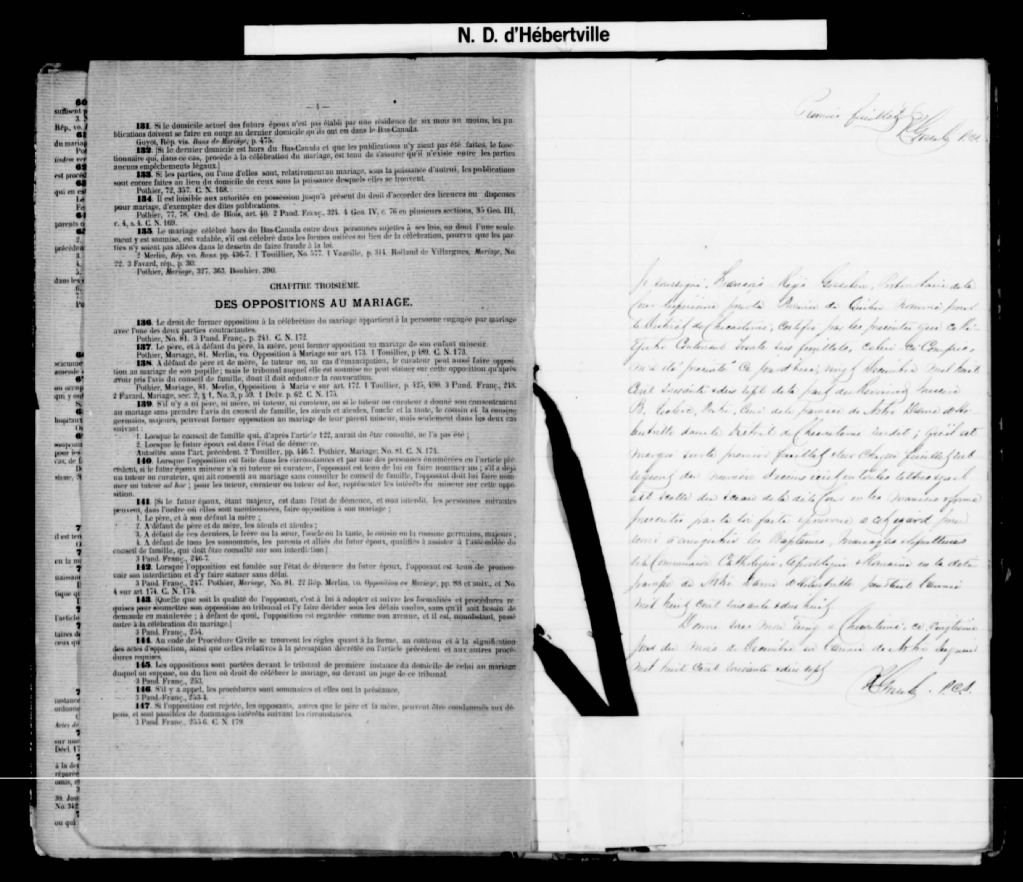 N. D. d'Hébertville
— 4 —
131. Si le domicile actuel des futurs époux n'est pas établi par une résidence de six mois au moins, les pu-
blications doivent se faire en outre au dernier domicile qu'ils ont eu dans le Bas-Canada.
Guyot, Rép. vis. Bans de Mariage, p. 475.
132. [Si le dernier domicile est hors du Bas-Canada et que les publications n'y aient pas été faites, le fonc-
tionnaire qui, dans ce cas, procède à la célébration du mariage, est tenu de s'assurer qu'il n'existe entre les parties
aucuns empêchements légaux.]
133. Si les parties, ou l'une d'elles sont, relativement au mariage, sous la puissance d'autrui, les publications
sont encore faites au lieu du domicile de ceux sous la puissance desquels elles se trouvent.
Pothier, 72, 357. C. N. 168.
134. Il est loisible aux autorités en possession jusqu'à présent du droit d'accorder des licences ou dispenses
pour mariage, d'exempter des dites publications.
Pothier, 77, 78. Ord. de Blois, art. 40. 2 Pand. Franç., 324. 4 Geo. IV, c. 76 en plusieurs sections, 35 Geo. III,
c. 4, s. 4. C. N. 169.
135. Le mariage célébré hors du Bas-Canada entre deux personnes sujettes à ses lois, ou dont l'une seule-
ment y est soumise, est valable, s'il est célébré dans les formes usitées au lieu de la célébration, pourvu que les par-
ties n'y soient pas allées dans le dessein de faire fraude à la loi.
2 Merlin, Rép. vo. Bans, pp. 436-7. 1 Toullier, No. 577. 1 Vazeille, p. 314. Rolland de Villargues, Mariage, No.
22. 3 Favard, rép., p. 30.
Pothier, Mariage, 327, 363. Bouhier, 390.
CHAPITRE TROISIÈME.
DES OPPOSITIONS AU MARIAGE.
136. Le droit de former opposition à la célébration du mariage appartient à la personne engagée par mariage
avec l'une des deux parties contractantes.
Pothier, No. 81. 3 Pand. Franç., p. 241. C. N. 172.
137. Le père, et à défaut du père, la mère, peut former opposition au mariage de son enfant mineur.
Pothier, Mariage, 81. Merlin, vo. Opposition à Mariage sur art. 173. 1 Toullier, p 489. C. N. 173.
138. A défaut de père et de mère, le tuteur ou, au cas d'émancipation, le curateur peut aussi faire opposi-
tion au mariage de son pupille ; mais le tribunal auquel elle est soumise ne peut statuer sur cette opposition qu'après
avoir pris l'avis du conseil de famille, dont il doit ordonner la convocation.
Pothier, Mariage, 81. Merlin, Opposition à Mariage sur art. 172. 1 Toullier, p 425, 490. 3 Pand. Franç., 248.
2 Favard, Mariage, sec. 2, § 1, No. 3, p 59. 1 Delv. p. 62. C. N. 175.
139. S'il n'y a ni père, ni mère, ni tuteur, ni curateur, ou si le tuteur ou curateur a donné son consentement
au mariage sans prendre l'avis du conseil de famille, les aïeuls et aïeules, l'oncle et la tante, le cousin et la cousine
germains, majeurs, peuvent former opposition au mariage de leur parent mineur, mais seulement dans les deux cas
suivant :
1. Lorsque le conseil de famille qui, d'après l'article 122, aurait du être consulté, ne l'a pas été ;
2. Lorsque le futur époux est dans l'état de démence.
Autorités sous l'art. précédent. 2 Touiller, pp. 446-7. Pothier, Mariage, No. 81. C. N. 174.
140. Lorsque l'opposition est faite dans les circonstances et par une des personnes énumérées en l'article pré-
cédent, si le futur époux mineur n'a ni tuteur ni curateur, l'opposant est tenu de lui en faire nommer un ; s'il a déjà
un tuteur ou curateur, qui ait consenti au mariage sans consulter le conseil de famille, l'opposant doit lui faire nom-
mer un tuteur ad hoc ; pour les tuteur, curateur ou tuteur ad hoc, représenter les intérêts du mineur sur cette oppo-
sition.
141. [Si le futur époux, étant majeur, est dans l'état de démence, et non interdit, les personnes suivantes
peuvent, dans l'ordre où elles sont mentionnées, faire opposition à son mariage ;
1. Le père, et à son défaut la mère ;
2. A défaut de père et de mère, les aïeuls et aïeules ;
3. A défaut de ces derniers, le frère ou la sœur, l'oncle ou la tante, le cousin ou la cousine germains, majeurs ;
4. A défaut de tous les susnommés, les parents et alliés du futur époux, qualifiés à assister à l'assemblée du
conseil de famille, qui doit être consulté sur son interdiction]
3 Pand. Franç., 246-7.
142. Lorsque l'opposition est fondée sur l'état de démence du futur époux, l'opposant est tenu de promou-
voir son interdiction et d'y faire statuer sans délai.
3 Pand. Franç., 247. Pothier, Mariage, No. 81. 22 Rép. Merlin, vo. Opposition au Mariage, pp. 88 et suiv., et No.
4 sur art 174. C. N. 174.
143. [Quelque soit la qualité de l'opposant, c'est à lui à adopter et suivre les formalités et procédures re-
quises pour soumettre son opposition au tribunal et l'y faire décider sous les délais voulus, sans qu'il soit besoin de
demande en mainlevée ; à défaut de quoi, l'opposition est regardée comme non avenue, et il est, nonobstant, passé
outre à la célébration du mariage.]
3 Pand. Franç., 254.
144. Au code de Procédure Civile se trouvent les règles quant à la forme, au contenu et à la signification
des actes d'opposition, ainsi que celles relatives à la péremption décrétée en l'article précédent et aux autres procé-
dures requises.
145. Les oppositions sont portées devant le tribunal de première instance du domicile de celui au mariage
duquel on s'oppose, ou du lieu où doit se célébrer le mariage, ou devant un juge de ce tribunal.
3 Pand. Franç., 253.
146. S'il y a appel, les procédures sont sommaires et elles ont la préséance.
3 Pand. Franç., 253-4.
147. Si l'opposition est rejetée, les opposants, autres que le père et la mère, peuvent être condamnés aux dé-
pens, et sont passibles de dommages-intérêts suivant les circonstances.
3 Pand. Franç., 255-6. C. N. 179.
Premier feuillet
P.C.S.
Je soussigné, François Régis Gosselin, Protonotaire de la
Cour Supérieure pour la Province de Québec nommé pour
le District de Chicoutimi, certifie par les présentes que ce Re-
gistre contenant trente six feuillets, celui-ci compris,
m'a été présenté ce jourd'hui, vingt Décembre mil huit
Cent soixante et dix sept de la part du Révérend Messire
B. Leclerc, Ptre, Curé de la paroisse de Notre Dame d'Hé-
bertville dans le District de Chicoutimi susdit ; qu'il est
marqué sur le premier feuillet et sur chaque feuillet sub-
séquent du numéro d'icelui écrit en toutes lettres et qu'il
est scellé du sceau de la dite Cour en la manière
prescrite par la loi faite et pourvue à cet égard, pour
servir d'enregistrer les Baptêmes, Mariages et Sépultures
de Communion Catholique, Apostolique et Romaine en la dite
paroisse de Notre Dame d'Hébertville pendant l'année
mil huit cent soixante et dix huit.
Donné sous mon seing à Chicoutimi, ce vingtième
jour du mois de Décembre en l'année de Notre Seigneur
mil huit cent soixante et dix sept.
P.C.S.